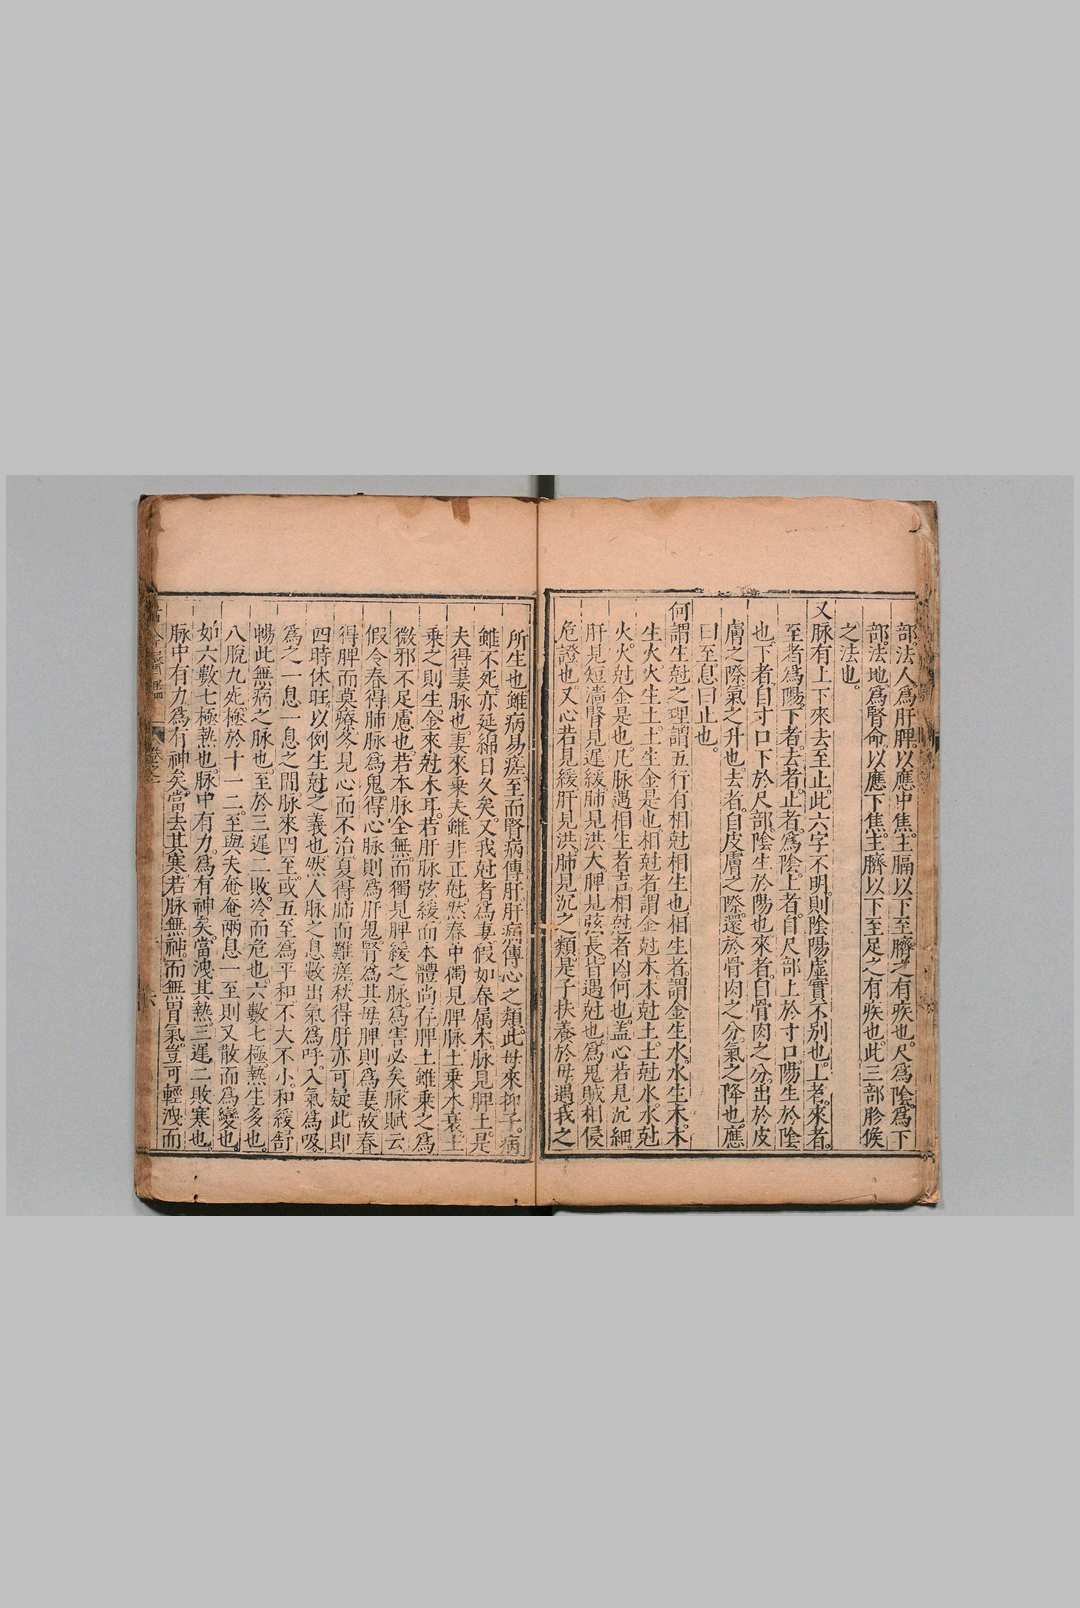 部法人為肝脾以應中焦主膈以下至臍之有疾也尺為陰為下
部法地為腎命以應下焦主臍以下至足之有疾也此三部胗候
之法也
又脉有上下來去至止此六字不明則陰陽虛實不别也上者來者
至者為陽下者去者止者為陰上者自尺部上於寸口陽生於陰
也下者自寸口下於尺部陰生於陽也來者自骨肉之分出於皮
膚之際氣之升也去者自皮膚之際還於骨肉之分氣之降也應
曰至息曰止也
何謂生尅之理謂五行有相尅相生也相生者謂金生水水生木木
生火火生土土生金是也相尅者謂金尅木木尅土土尅水水尅
火火尅金是也凡脉遇相生者吉相尅者凶何也盖心若見沉細
肝見短濇腎見遲緩肺見洪大脾見弦長皆遇尅也為鬼賊相侵
危證也又心若見緩肝見洪肺見沉之類是子扶養於母遇我之
所生也雖病易瘥至而腎病傳肝肝病傳心之類此母來抑子病
雖不死亦延綿日久矣又我尅者為妻假如春属木脉見脾土是
夫得妻脉也妻來乗夫雖非正尅然春中獨見脾脉土乗木衰土
乗之則生金來尅木耳若肝脉弦緩而本體尚存脾土雖乗之為
微邪不足慮也若本脉全無而獨見脾緩之脉為害必矣脉賦云
假令春得肺脉為鬼得心脉則為肝兒腎為其母脾則為妻故春
得脾而莫療冬見心而不治夏得肺而難瘥秋得肝亦可疑此即
四時休旺以例生尅之義也然人脉之息數出氣為呼入氣為吸
為之一息一息之間脉來四至或五至為平和不大不小和緩舒
暢此無病之脉也至於三遲二敗冷而危也六數七極熱生多也
八脫九死極於十一二至與夫奄奄兩息一至則又散而為變也
如六數七極熱也脉中有力為有神矣當洩其熱三遲二敗寒也
脉中有力為有神矣當去其寒若脉無神而無胃氣豈可輕洩而